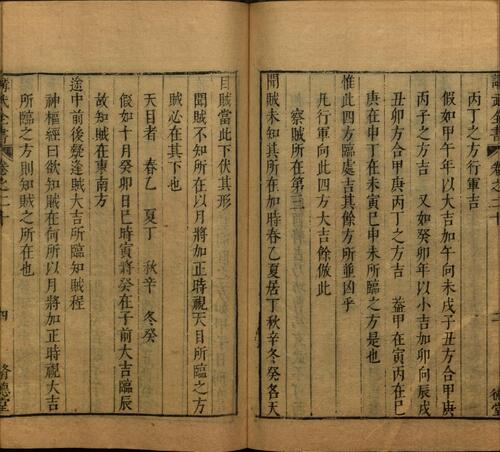 丙丁之方行軍吉
假如甲午年以大吉加午向未戌子丑方合甲庚
丙子之方吉　又如癸卯年以小吉加卯向辰戌
丑卯方合甲庚丙丁之方吉　葢甲在寅丙在巳
庚在申丁在未寅巳申未所臨之方是也
惟此四方臨處吉其餘方所並凶乎
凡行軍向此四方大吉餘倣此
察賊所在第三
聞賊未知其所在加時春乙夏丁秋辛冬癸各天
目賊當此下伏其形
聞賊不知所在以月將加正時視天目所臨之方
賊必在其下也
天目者　春乙　夏丁　秋辛　冬癸
假如十月癸卯日巳時寅將癸在子前大吉臨辰
故知賊在東南方
途中前後覺逢賊大吉所臨知賊程
神樞經曰欲知賊在何所以月將加正時視大吉
所臨之方則知賊之所在也
卷之二十
四